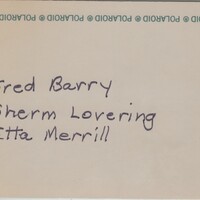 POLAROID ® POLAROID ® POLAROID ® POLAROID ® POLAROID
Fred Barry
Sherm Lovering
Etta Merrill